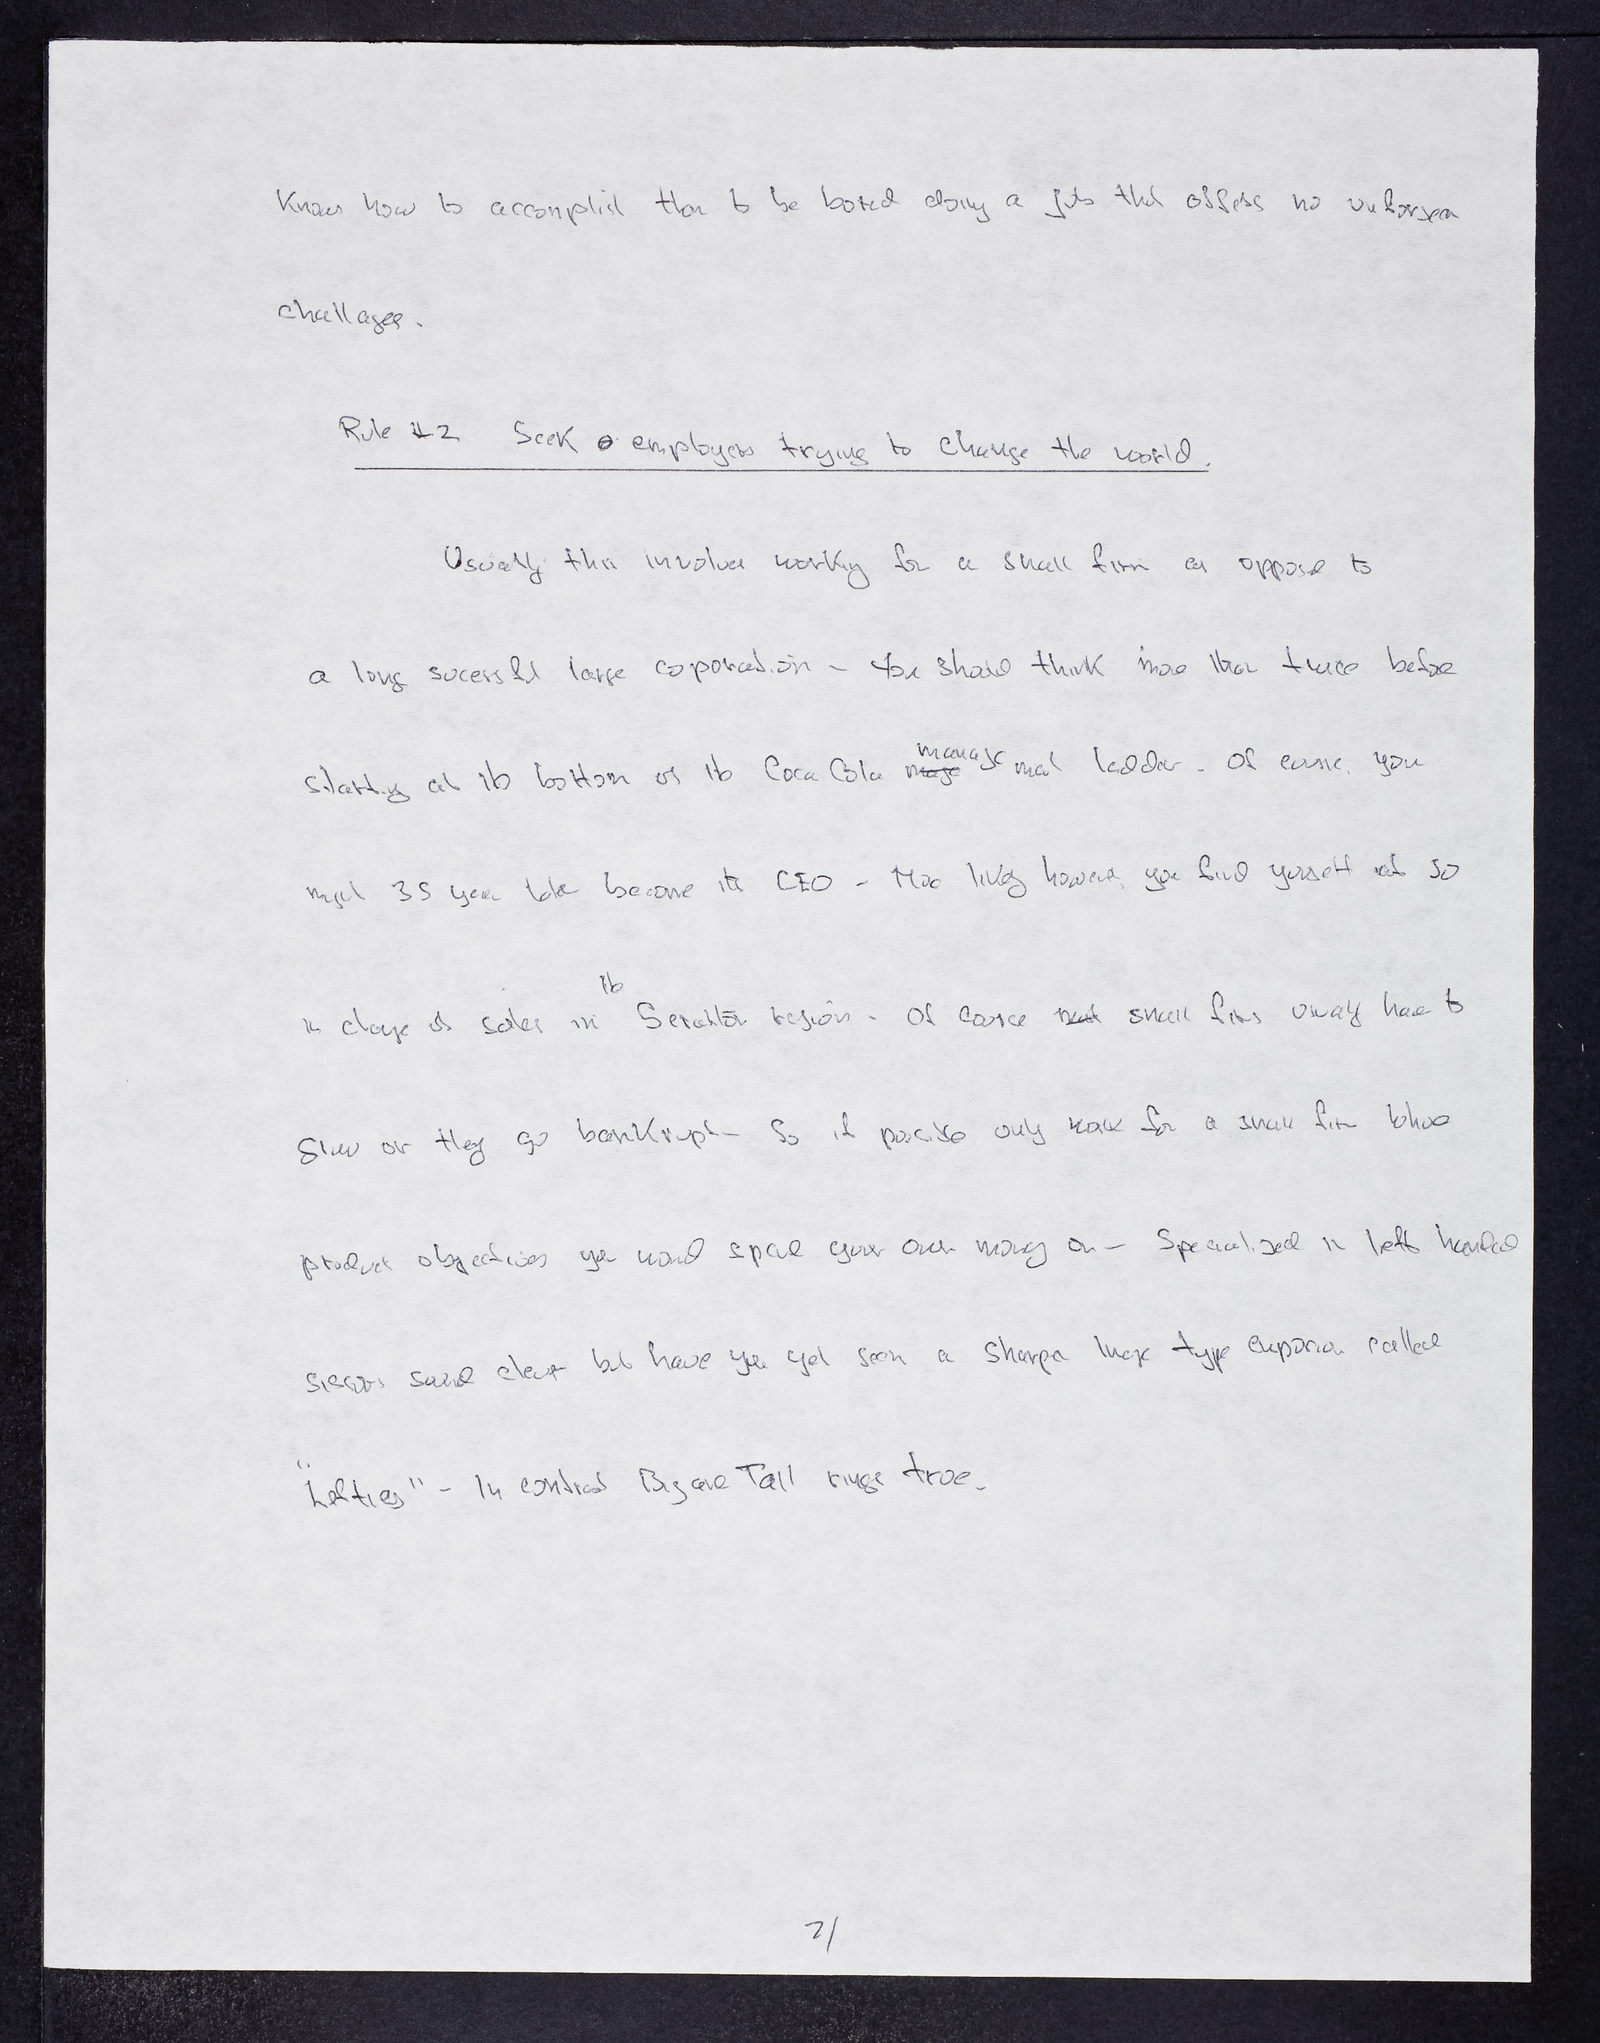 know how to accomplish than to be bored doing a job that offers no unforseen
challages.
Rule #2 Seek employers trying to change the world.
Usually this involves working for a small firm as oppose to
a long sucessful large corporation – You should think more than twice before
starting at the bottom of the Coca Cola manage ment ladder. Of course, you
might 35 years later become its CEO – More likely however, you find yourself at 50
in charge of sales in the Scranton region. Of course small firms usually have to
grow or they go bankrupt – So if possible only work for a small firm whose
product objectives you would spend your own money on – Specialized in left handed
sissors sound clever but have you yet seen a Sharper Image type emporion called
"Lefties" – In contrast Big and Tall rings true.
2/